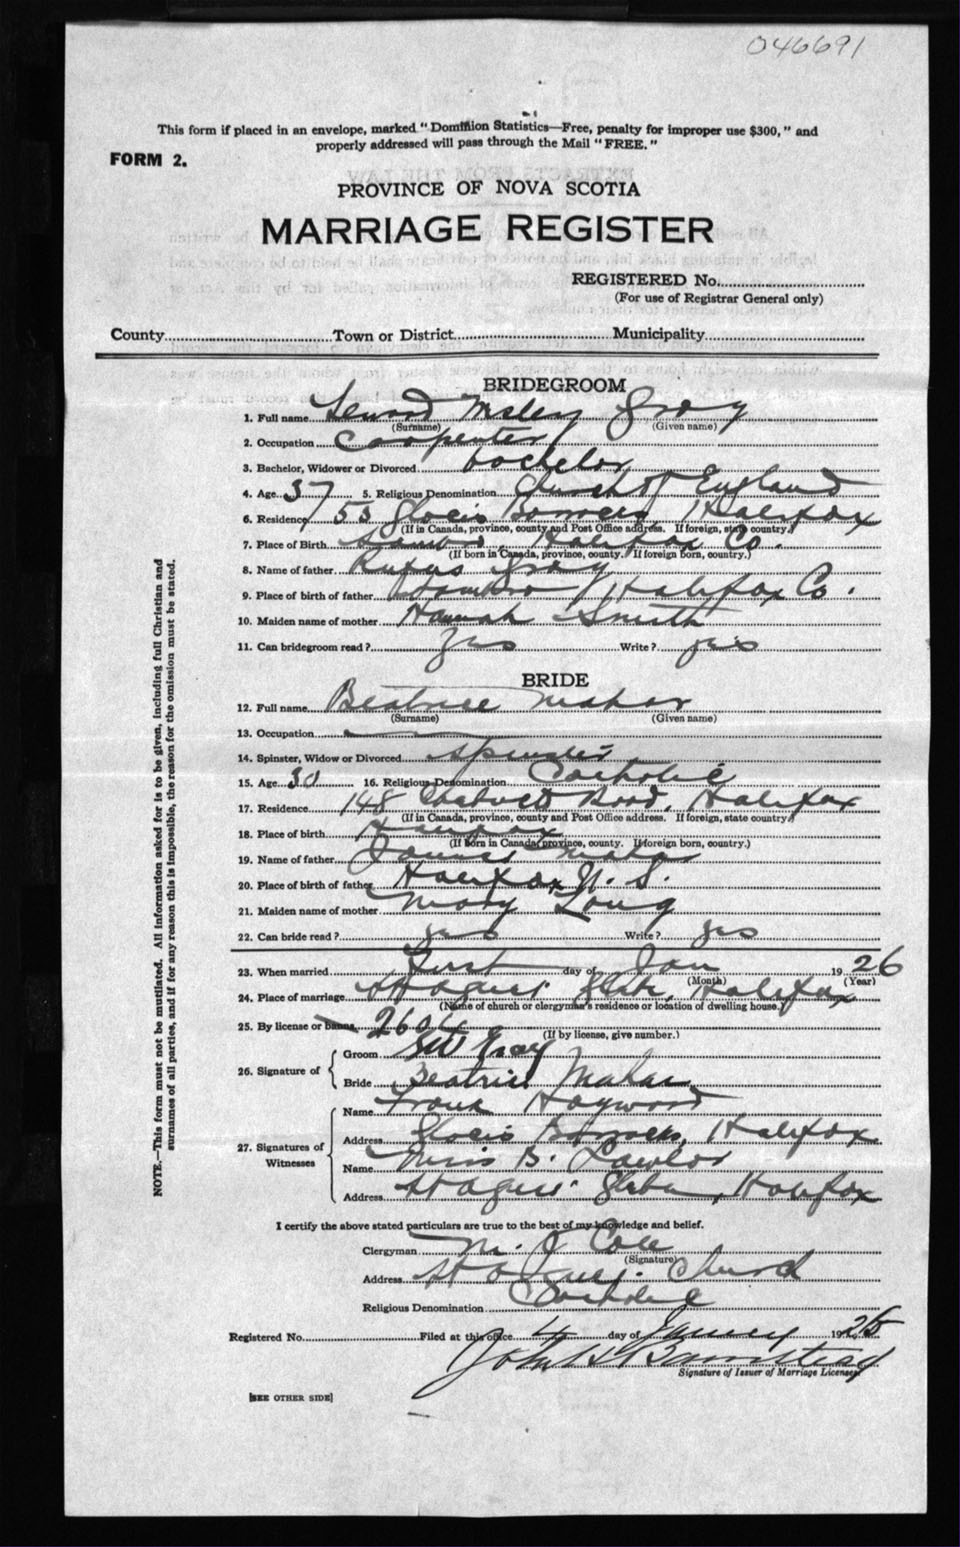 046691
This form if placed in an envelope, marked "Dominion Statistics—Free, penalty for improper use $300," and
properly addressed will pass through the Mail "FREE."
FORM 2.
PROVINCE OF NOVA SCOTIA
MARRIAGE REGISTER
REGISTERED No.
(For use of Registrar General only)
County Town or District Municipality
BRIDEGROOM
1. Full name Gray
(Surname) (Given name)
2. Occupation Carpenter
3. Bachelor, Widower or Divorced bachelor
4. Age 37 5. Religious Denomination Church of England
6. Residence 55 Halifax
(If in Canada, province, county and Post Office address. If foreign, state country.)
7. Place of Birth Sambro, Halifax Co.
(If born in Canada, province, county. If foreign born, country.)
8. Name of father Rufus Gray
9. Place of birth of father Sambro, Halifax Co.
10. Maiden name of mother Hannah Smith
11. Can bridegroom read? yes Write? yes
BRIDE
12. Full name Beatrice Mahar
(Surname) (Given name)
13. Occupation
14. Spinster, Widow or Divorced Spinster
15. Age 30 16. Religious Denomination Catholic
17. Residence 148 Road, Halifax
(If in Canada, province, county and Post Office address. If foreign, state country.)
18. Place of birth Halifax
(If born in Canada, province, county. If foreign born, country.)
19. Name of father James Mahar
20. Place of birth of father Halifax N. S.
21. Maiden name of mother Mary Long
22. Can bride read? yes Write? yes
23. When married First day of Jan 1926
(Month) (Year)
24. Place of marriage St Agnes Glebe, Halifax
(Name of church or clergyman's residence or location of dwelling house.)
25. By license or banns
(If by license, give number.)
26. Signature of
Groom Gray
Bride Beatrice Mahar
27. Signatures of Witnesses
Name Frank Hayward
Address Barracks, Halifax
Name Miss B. Lawlor
Address St Agnes Glebe, Halifax
I certify the above stated particulars are true to the best of my knowledge and belief.
Clergyman M. J Cole
(Signature)
Address St Agnes Church
Religious Denomination Catholic
Registered No. Filed at this office 4 day of January 1925
John
Signature of Issuer of Marriage Licenses
[SEE OTHER SIDE]
NOTE.—This form must not be mutilated. All information asked for is to be given, including full Christian and
surnames of all parties, and if for any reason this is impossible, the reason for the omission must be stated.